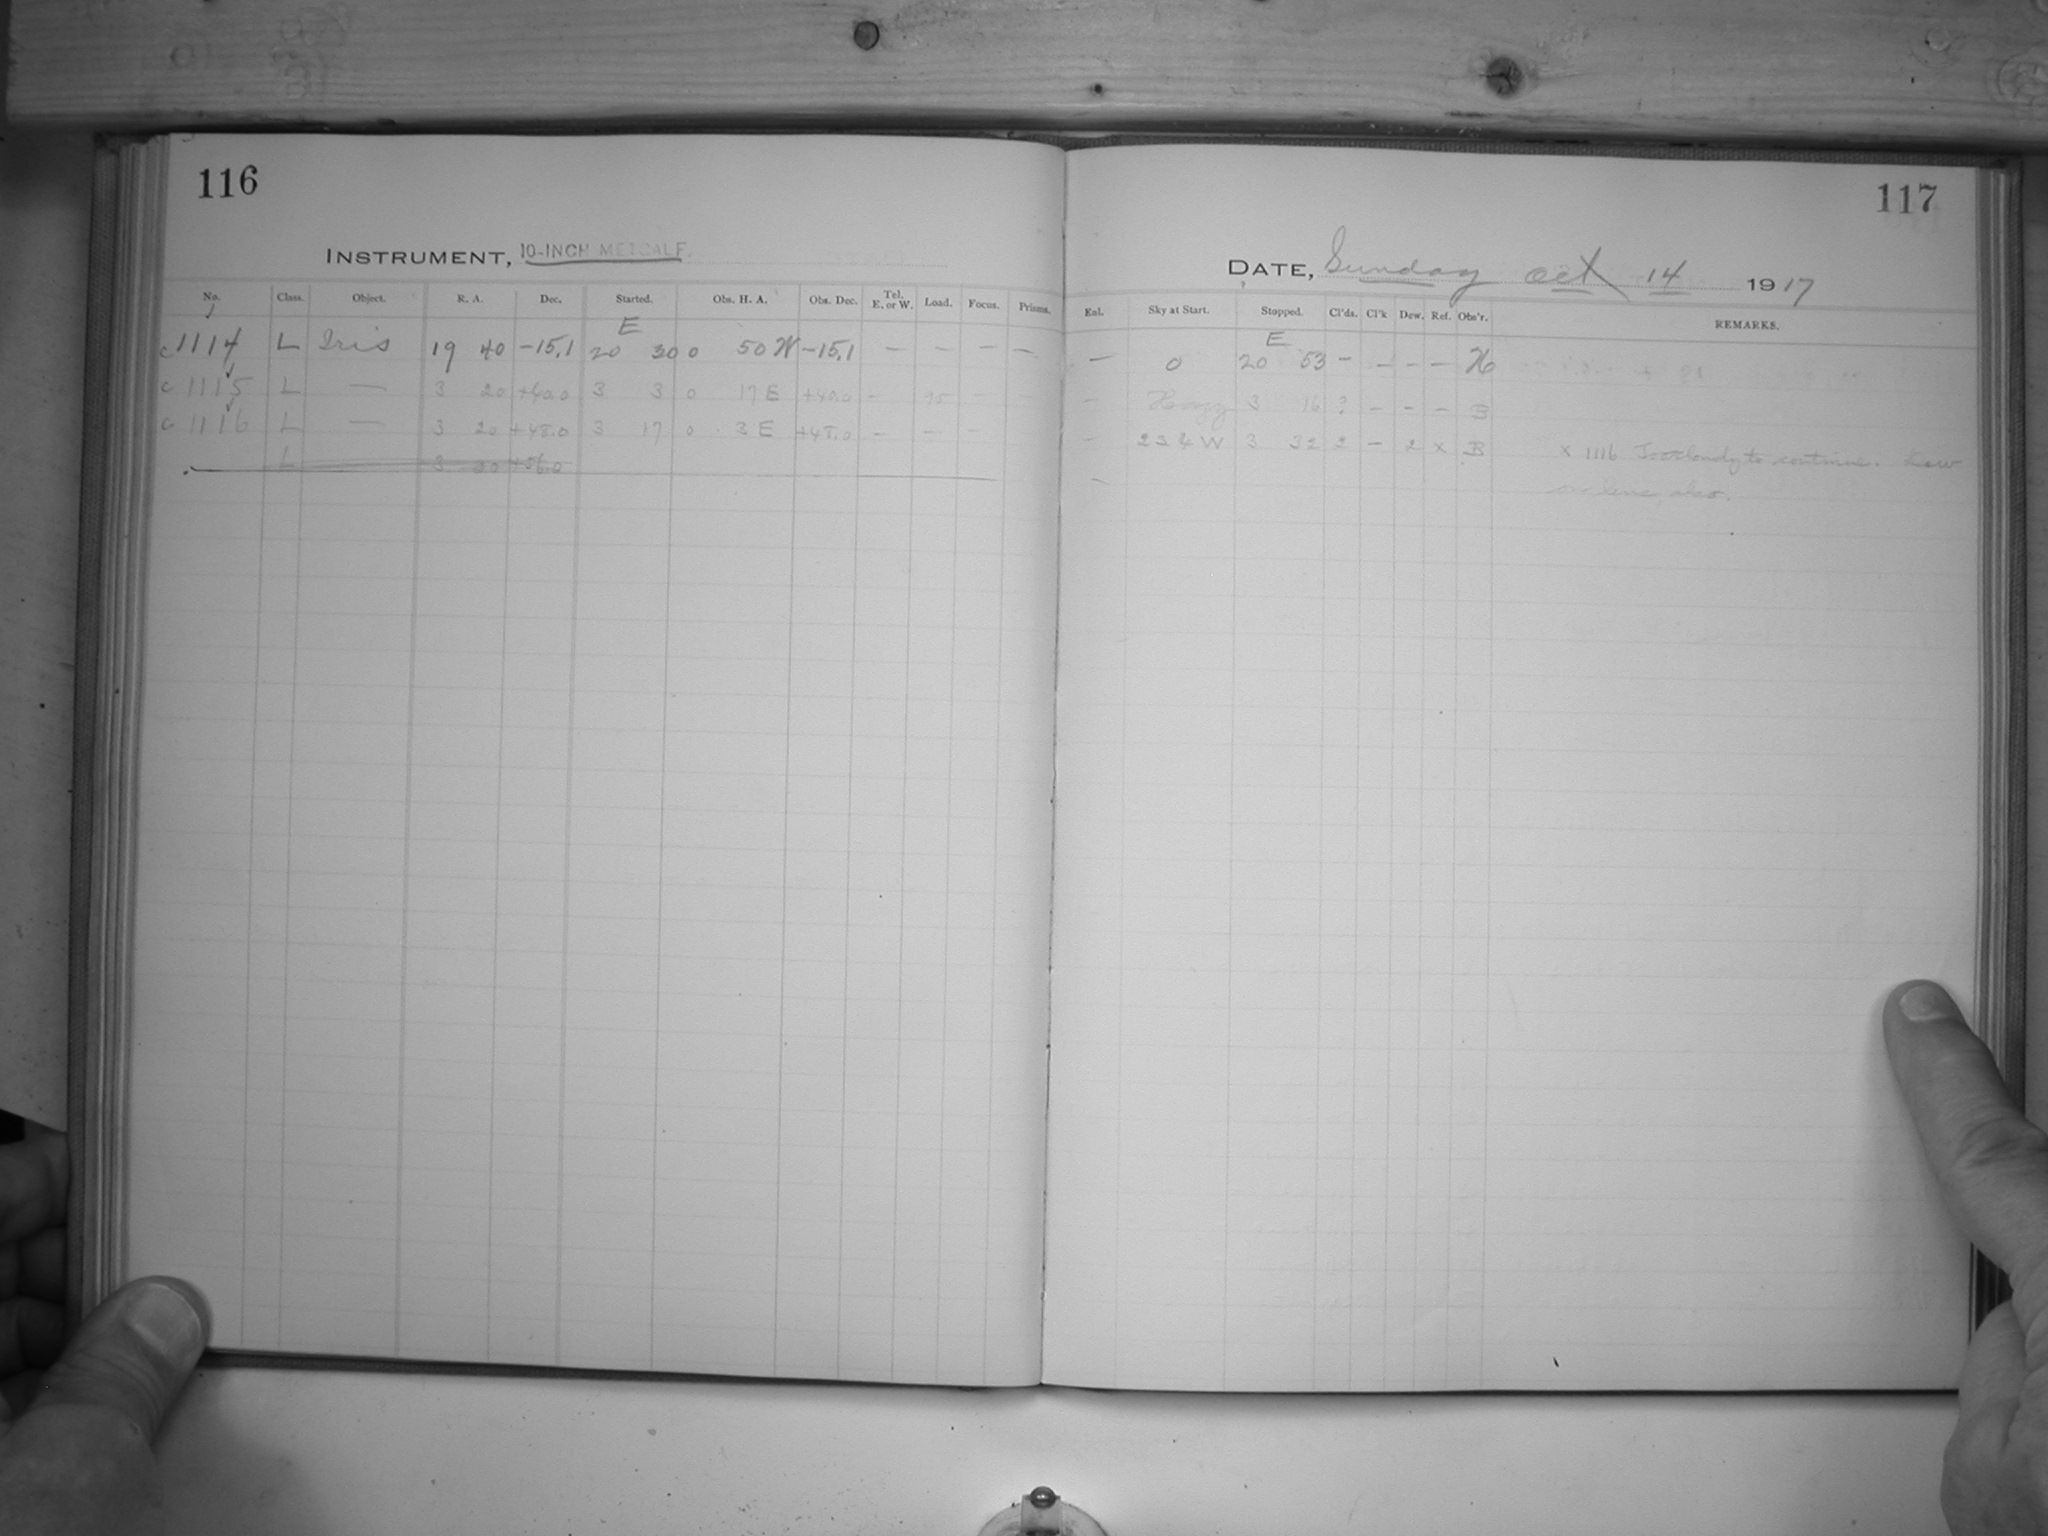 116
INSTRUMENT, 10-INCH METCALF.
No. Class. Object. R. A. Dec. Started. Obs. H. A. Obs. Dec. Tel. E. or W. Load. Focus. Prisms.
E
c 1114 L Iris 19 40 -15.1 20 30 0 50 W -15.1 — — — —
c 1115 L — 3 20 +40.0 3 3 0 17 E +40.0 - 95 - -
c 1116 L — 3 20 +48.0 3 17 0 3 E +48.0 - - -
L 3 20 +56.0
117
DATE, Sunday Oct 14 1917
Exl. Sky at Start. Stopped. Cl'ds. Cl'k Dew. Ref. Obs'r. REMARKS.
E
— 0 20 53 - - - - H
- Hazy 3 16 ? - - - B
- 2 3 & W 3 32 2 - 2 x B x 1116 Too cloudy to continue. Dew
- on lens, also.